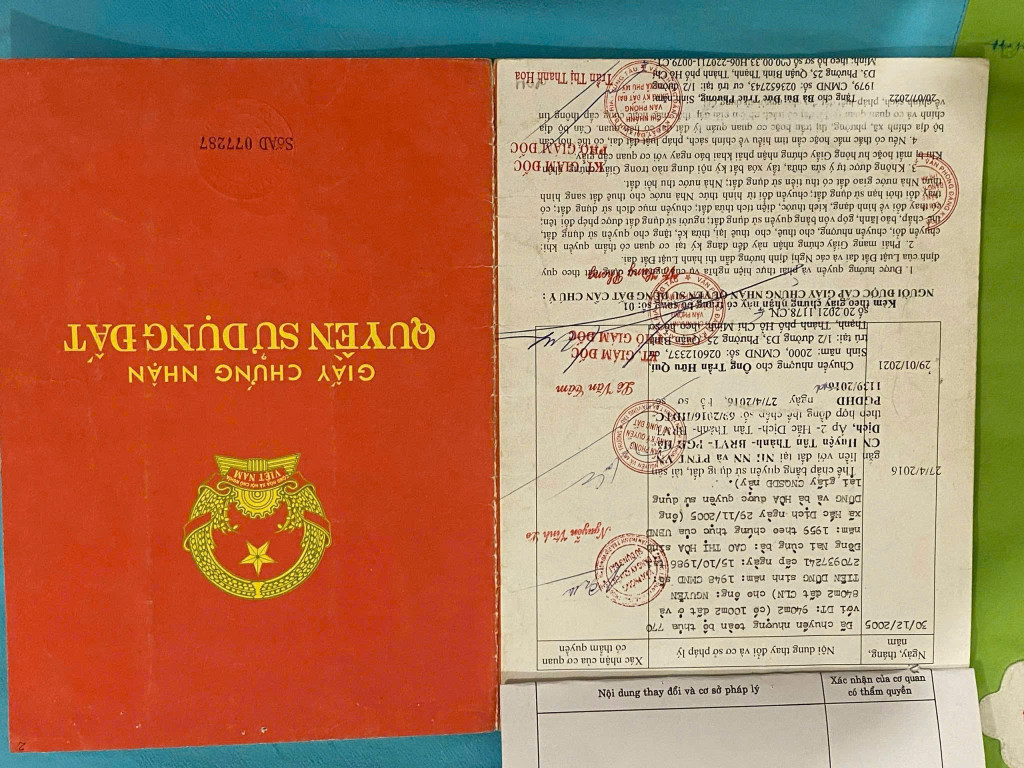 GIẤY CHỨNG NHẬN
QUYỀN SỬ DỤNG ĐẤT
CỘNG HÒA XÃ HỘI CHỦ NGHĨA
VIỆT NAM
Số AD 077287
Ngày, tháng, năm
Nội dung thay đổi và cơ sở pháp lý
Xác nhận của cơ quan có thẩm quyền
30/12/2005
Đã chuyển nhượng toàn bộ thửa 770
với DT: 940m2 (có 100m2 đất ở và
840m2 đất CLN) cho ông: NGUYỄN
TIẾN DŨNG sinh năm: 1948 CMND số:
270937241 cấp ngày: 15/10/1986
Đồng Nai cùng bà: CAO THỊ HÒA sinh
năm: 1959 theo chứng thực của UBND
xã Hắc Dịch ngày 29/11/2005 (ông
DŨNG và bà HÒA được quyền sử dụng
lại giấy CNQSDĐ này).
Nguyễn Vĩnh Lộ
27/4/2016
Thế chấp bằng quyền sử dụng đất, tài sản
gắn liền với đất tại NH NN và PTNT VN
CN Huyện Tân Thành- BRVT- PGD Hắc
Dịch, Ấp 2- Hắc Dịch- Tân Thành- BRVT
theo hợp đồng thế chấp số: 69/2016/HĐTC
PGDHD ngày 27/4/2016, hồ sơ số
1139/2016
Lê Văn Tâm
29/01/2021
Chuyển nhượng cho Ông Trần Hữu Qui
Sinh năm: 2000, CMND số: 026012337, cư
trú tại: 1/2 đường D3, Phường 25, Quận Bình
Thạnh, Thành phố Hồ Chí Minh; theo hồ sơ
số 20.2021.1178.CN
KT. GIÁM ĐỐC
PHÓ GIÁM ĐỐC
Kèm theo giấy chứng nhận này có trang bổ sung số: 01
NGƯỜI ĐƯỢC CẤP GIẤY CHỨNG NHẬN QUYỀN SỬ DỤNG ĐẤT CẦN CHÚ Ý :
1. Được hưởng quyền và phải thực hiện nghĩa vụ của người sử dụng đất theo quy
định của Luật Đất đai và các Nghị định hướng dẫn thi hành Luật Đất đai.
2. Phải mang Giấy chứng nhận này đến đăng ký tại cơ quan có thẩm quyền khi:
chuyển đổi, chuyển nhượng, cho thuê, cho thuê lại, thừa kế, tặng cho quyền sử dụng đất,
thế chấp, bảo lãnh, góp vốn bằng quyền sử dụng đất; người sử dụng đất được phép đổi tên;
có thay đổi về hình dạng, kích thước, diện tích thửa đất; chuyển mục đích sử dụng đất; có
thay đổi thời hạn sử dụng đất; chuyển đổi từ hình thức Nhà nước cho thuê đất sang hình
thức Nhà nước giao đất có thu tiền sử dụng đất; Nhà nước thu hồi đất.
3. Không được tự ý sửa chữa, tẩy xóa bất kỳ nội dung nào trong Giấy chứng nhận
Khi bị mất hoặc hư hỏng Giấy chứng nhận phải khai báo ngay với cơ quan cấp giấy.
4. Nếu có thắc mắc hoặc cần tìm hiểu về chính sách, pháp luật đất đai, có thể hỏi cán
bộ địa chính xã, phường, thị trấn hoặc cơ quan quản lý đất đai có liên quan. Cán bộ địa
20/07/2022
Tặng cho Bà Bùi Đức Trúc Phương, Sinh năm:
1979, CMND số: 023652743, cư trú tại: 1/2 đường
D3, Phường 25, Quận Bình Thạnh, Thành phố Hồ Chí
Minh; theo hồ sơ số 000.00.33.H06-220711-0079.CT
KT. GIÁM ĐỐC
PHÓ GIÁM ĐỐC
Trần Thị Thanh Hoa
Nội dung thay đổi và cơ sở pháp lý
Xác nhận của cơ quan
có thẩm quyền